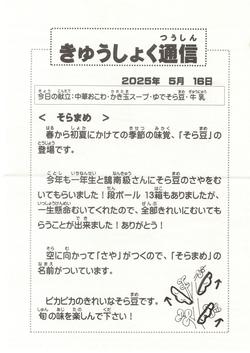 きゅうしょく通信
2025年 5月 16日
今日の献立：中華おこわ・かき玉スープ・ゆでそら豆・牛乳
＜ そらまめ ＞
春から初夏にかけての季節の味覚、「そら豆」の
登場です。
今年も一年生と鵠南級さんにそら豆のさやをむ
いてもらいました！段ボール 13箱もありましたが、
一生懸命むいてくれたので、全部きれいにむいても
らうことが出来ました！ありがとう！
空に向かって「さや」がつくので、「そらまめ」の
名前がついています。
ピカピカのきれいなそら豆です。
旬の味を楽しんで下さい！